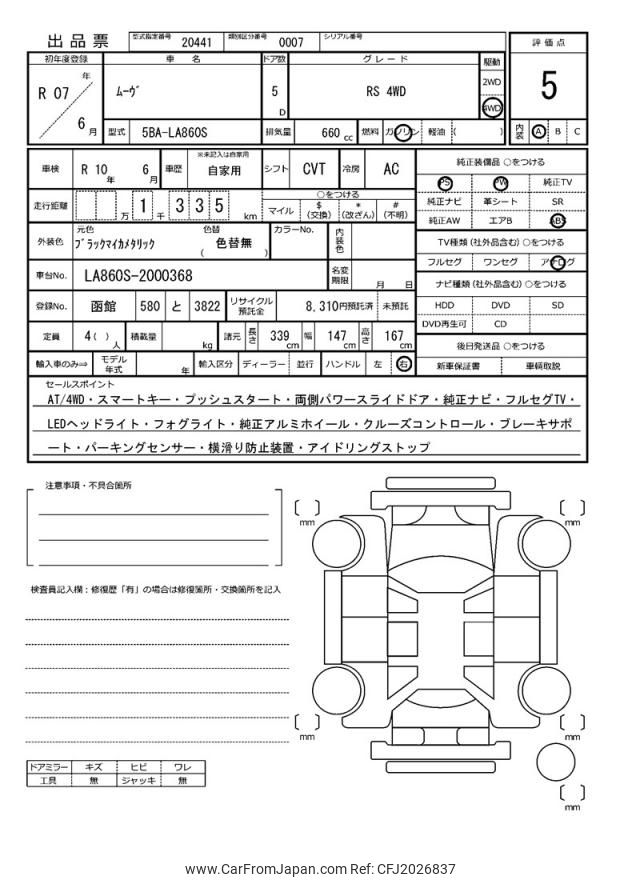 出品票 型式指定番号 20441 類別区分番号 0007 シリアル番号
評価点
5
内装 A B C
初年度登録 車名 ドア数 グレード 駆動
R 07 年 6 月 ﾑｰｳﾞ 5 D RS 4WD 2WD 4WD
型式 5BA-LA860S 排気量 660 cc 燃料 ガソリン 軽油 ( )
車検 R 10 年 6 月 車歴 ※未記入は自家用 自家用 シフト CVT 冷房 AC
走行距離 万 1 千 3 3 5 km ○をつける
マイル $(交換) *(改ざん) #(不明)
外装色 元色 ﾌﾞﾗｯｸﾏｲｶﾒﾀﾘｯｸ 色替 ( 色替無 ) カラーNo. 内装色
車台No. LA860S-2000368 名変期限 月 日
登録No. 函館 580 と 3822 リサイクル預託金 8,310円預託済 未預託
定員 4( ) 人 積載量 kg 諸元 長さ 339 cm 幅 147 cm 高さ 167 cm
輸入車のみ⇒ モデル年式 年 輸入区分 ディーラー 並行 ハンドル 左 右
純正装備品 ○をつける
PS PW 純正TV
純正ナビ 革シート SR
純正AW エアB ABS
TV種類 (社外品含む) ○をつける
フルセグ ワンセグ アナログ
ナビ種類 (社外品含む) ○をつける
HDD DVD SD
DVD再生可 CD
後日発送品 ○をつける
新車保証書 車輌取説
セールスポイント
AT/4WD・スマートキー・プッシュスタート・両側パワースライドドア・純正ナビ・フルセグTV・
LEDヘッドライト・フォグライト・純正アルミホイール・クルーズコントロール・ブレーキサポ
ート・パーキングセンサー・横滑り防止装置・アイドリングストップ
注意事項・不具合箇所
検査員記入欄：修復歴「有」の場合は修復箇所・交換箇所を記入
ドアミラー キズ ヒビ ワレ
工具 無 ジャッキ 無
mm
mm
mm
mm
mm
www.CarFromJapan.com Ref: CFJ2026837